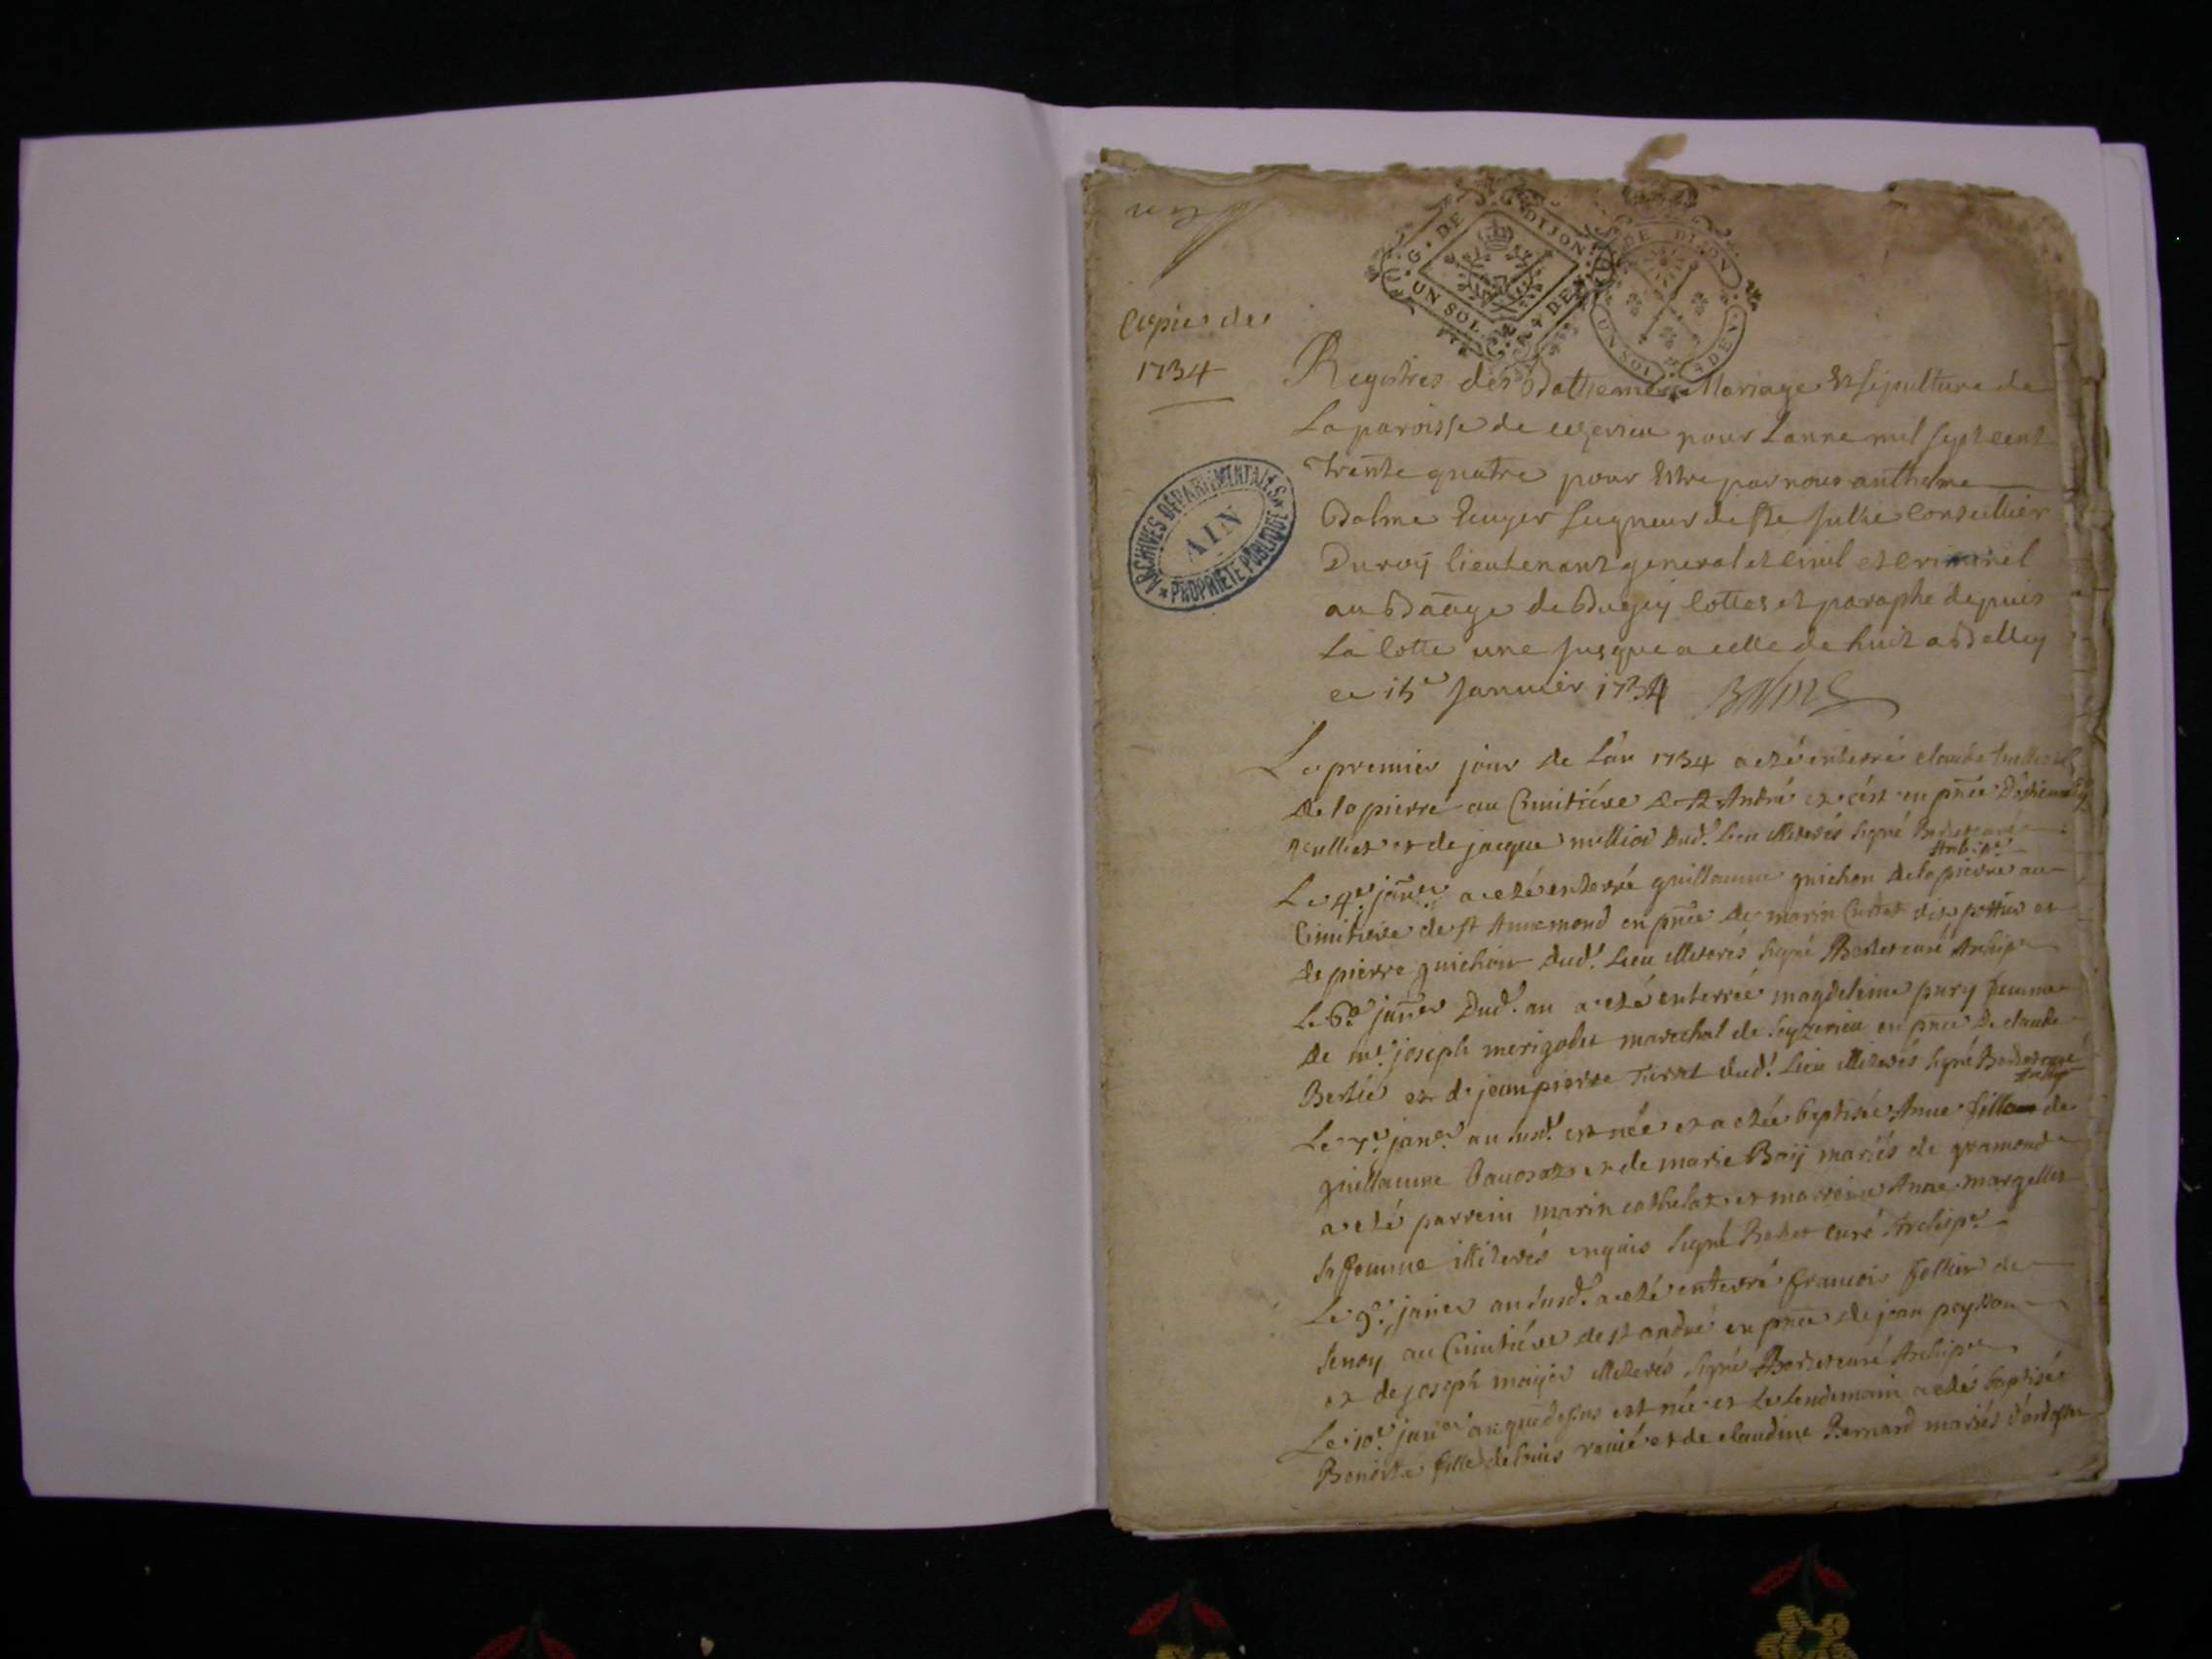 G. DE DIJON
UN SOL 4 DEN
DE DIJON
UN SOL 4 DEN.
Copie de
1734
ARCHIVES DEPARTEMENTALES
AIN
* PROPRIETE PUBLIQUE *
Registres des Battemes Mariage Et sepulture de
La paroisse de ceyzerieu pour Lanne mil sept cent
trente quatre pour Estre par nous anthelme
Balme Ecuyer seigneur de Ste Jullie Conseillier
Du roy lieutenant general et civil et criminel
au Baage de Bugey Cottes et paraphe depuis
La Cotte une jusque a celle de huit a Belley
ce 15e Janvier 1734 Balme
Le premier jour de L'an 1734 a eté enterré claude
De la pierre au Cimitiére de St André et c'est en pñce
et de jacque millior dud.t Lieu illiterés signé Bordet curé
Archip.e
Le 4.e jañ.er a eté enterré guillaume guichon de la pierre au
Cimitiere de st Annemond en pñce de marin dit pottier et
de pierre guichon dud.t Lieu illiterés signé Bordet curé Archip.e
Le 6.e jañ.er Dud.t an a eté enterrée magdeleine pury femme
de m.e joseph merigodet marechal de Seyzerieu en pñce De claude
Bertie et de jean pierre Turret dud.t Lieu illiterés signé Bordet curé
Archip
Le 7.e jan.er an susd.t est née et a etée baptisée Anne fille de
guillaume et de marie Boij mariés de gramond
a eté parrein marin cathelat et marreine Anne margellet
sa femme illiterés enquis signé Bordet curé Archip.e
Le 9.e jañer an susd.t a eté enterré francois follier de
senoy au Cimitiére de st andré en pñce de jean peysson
et de joseph illiterés signé Bordet curé Archip.e
Le 10.e jan.er an que dessus est née et Le Lendemain a eté baptisée
Benoite fille de Louis et de claudine Bernard mariés